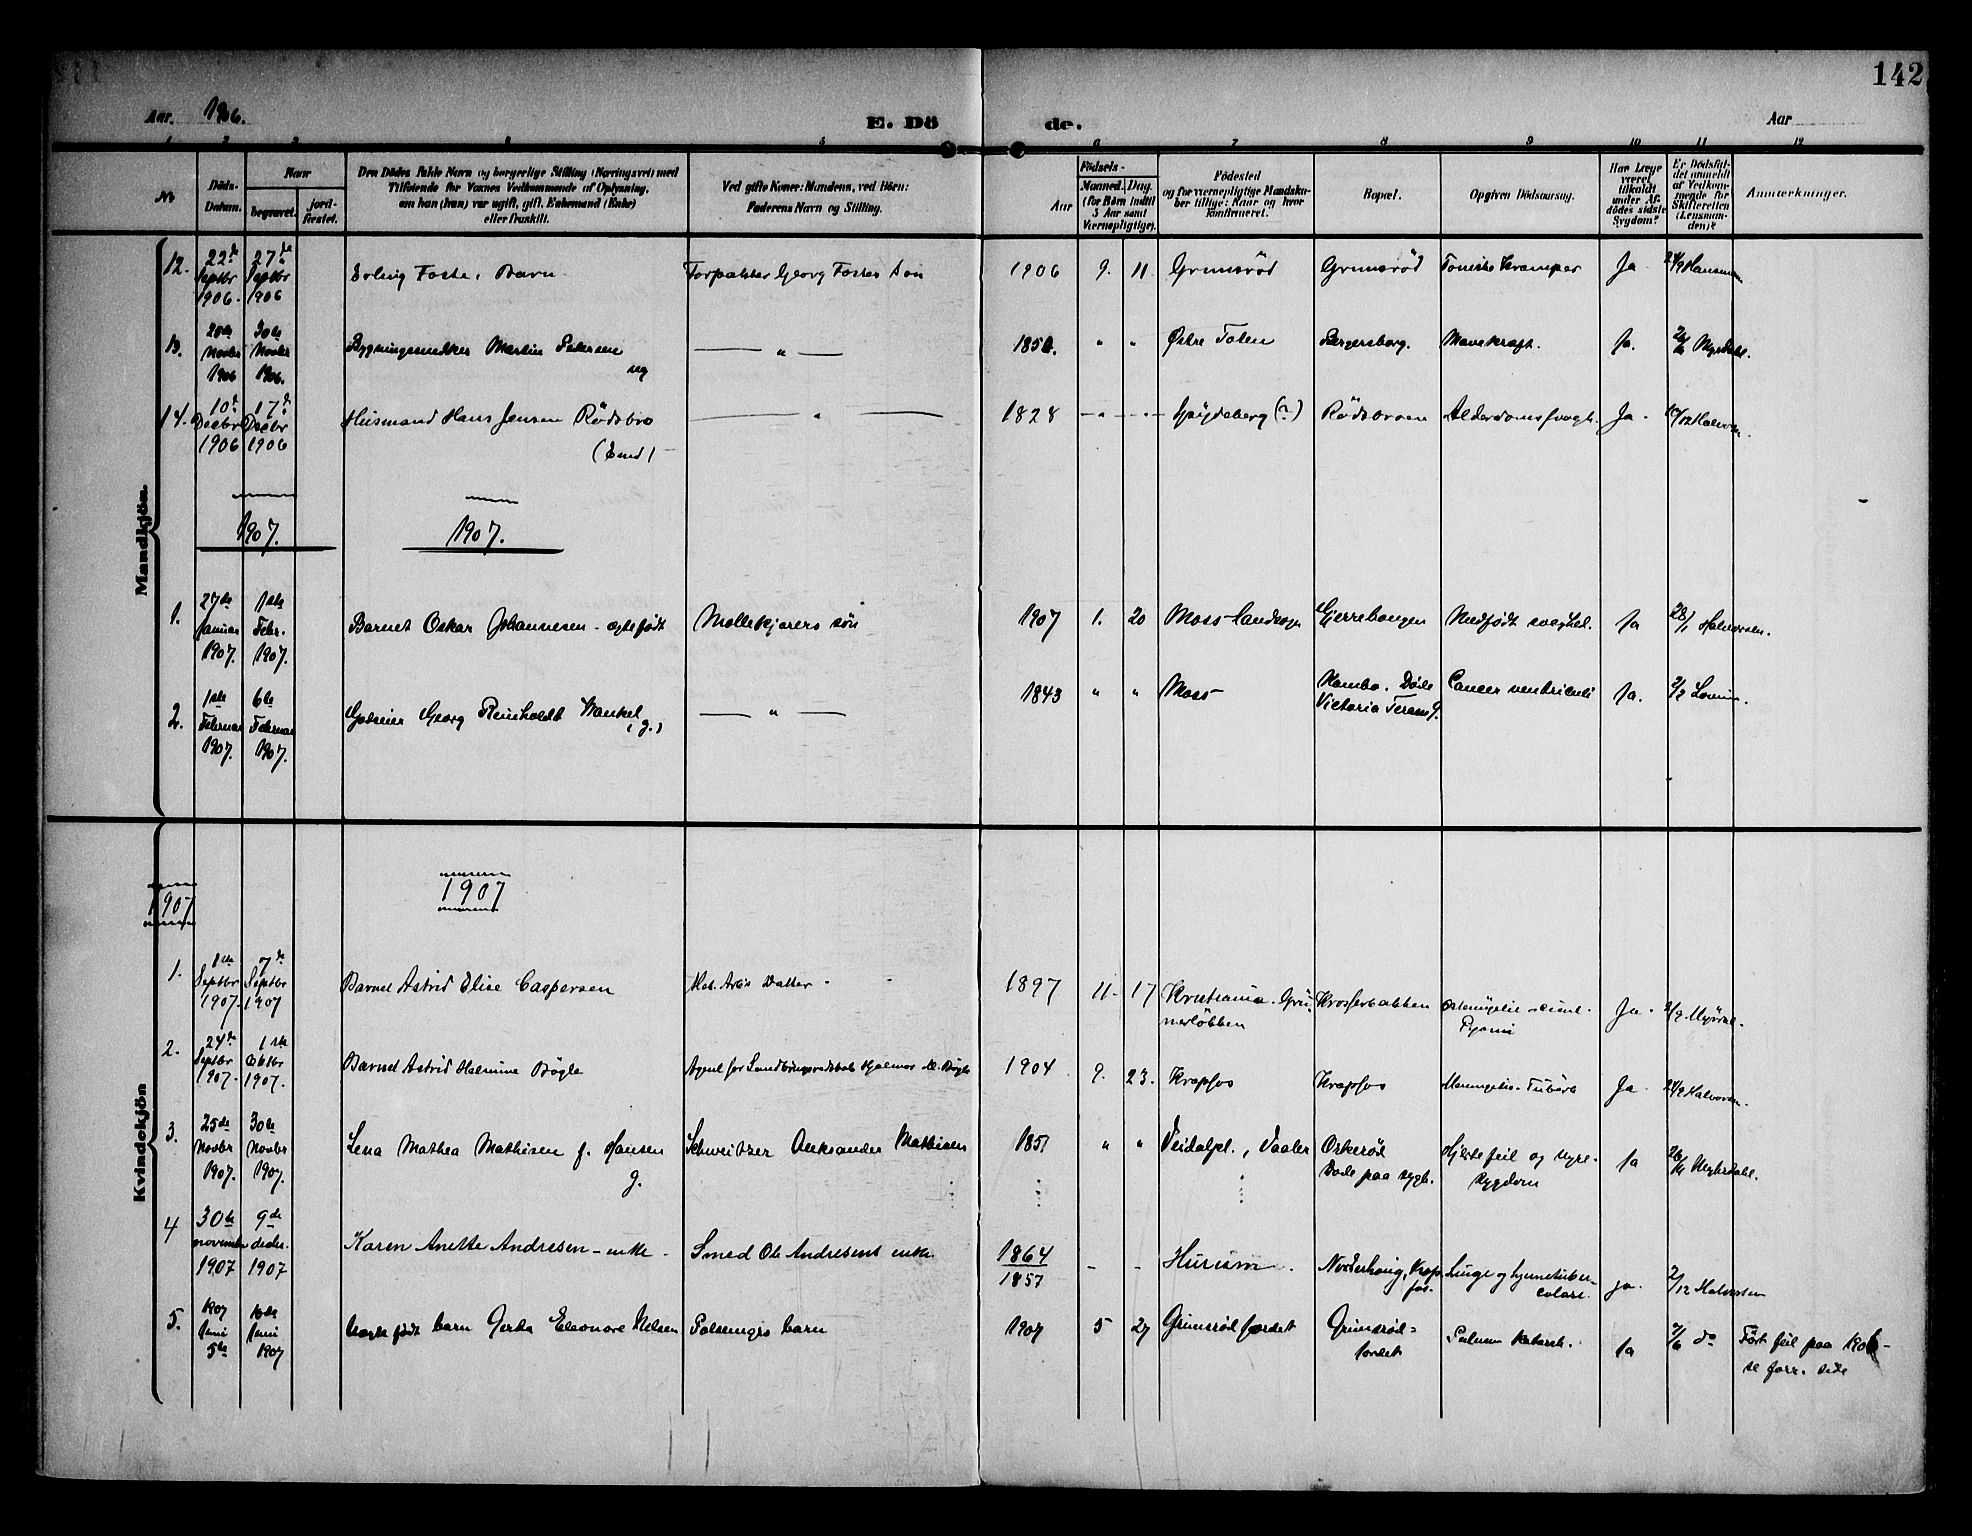 142
Aar. 1906.
E. Döde.
Aar
1 2 3 4 5 6 7 8 9 10 11 12
№
Döds-Datum.
Naar
begravet.
jordfæstet.
Den Dödes fulde Navn og borgerlige Stilling (Næringsvei) med
Tilföiende for Voxnes Vedkommende af Oplysning,
om han (hun) var ugift, gift, Enkemand (Enke)
eller fraskilt.
Ved gifte Koner: Mandens, ved Börn:
Faderens Navn og Stilling.
Aar
Födsels-
Maaned. Dag.
(for Børn indtil
3 Aar samt
Værnepligtige).
Födested
og for værnepligtige Mandskaber tillige: Naar og hvor
konfirmeret.
Bopæl.
Opgiven Dödsaarsag.
Har Læge
været
tilkaldt
under Afdödes sidste
Sygdom?
Er Dødsfaldet anmeldt
af Vedkommende for
Skifteretten
(Lensmanden)?
Anmærkninger.
Mandkjön.
12. 22de Septbr 1906. 27de Septbr 1906 Erling Foster, Barn Georg Fosters Søn 1906 9. 11. Grimsrød Grimsrød Toniske Kramper Ja
13. Novbr 1906 30te Novbr 1906. Martin Petersen ug — " — " " Østre Toten Bergersborg. Mavekræft. Ja. Myrdahl.
14. 10de Decbr 1906 17de Decbr 1906 Husmand Hans Jensen Rødsbro (Emd) — " — 1828 — " — " — Spydeberg (?) Rødsbroen Alderdomssvagh. Ja. 10/12 Halvorsen.
1907. 1907.
1. 27de Januar 1907. 1ste Febr. 1907. Barnet Oskar Johannesen - egtefødt Møllekjørers søn 1907 1. 20 Moss Landsogn Gjerrebogen Medfødt svaghed. Ja 28/1 Halvorsen.
2. 1ste Februar 1907. 6te Februar 1907. Godseier Georg Reinholdt Wankel (g.) — " — 1843 " " Moss Kambo. Døde Victoria Terasse 9. Cancer ventriculi Ja. 2/2
Kvindekjön
1907 1907
1. Septbr 1907. 7de Septbr 1907 Barnet Astrid Elise Caspersen Datter 1897 11. 17 Kristiania. Grünerløbben Krosserbakken Ja.
2. 24de Septbr 1907. 1ste Oktbr 1907. Barnet Astrid Halmine Bøgle Agent for 1904 9. 23. Krapfos Krapfos Ja. Halvorsen.
3. 25de Novbr 1907. 30te Novbr 1907. Lena Mathea Mathisen f. Hansen g. Schweitzer Aleksander Mathisen 1851 " " Vaaler Orkerød Døde paa sygh. Hjertefeil og nyresygdom Ja 26/11 Myhrdahl.
4 30te november 1907 9de decbr. 1907 Karen Anette Andresen - enke - Smed Ole Andresens enke 1864 1857 - - Hurum. Krapfos. Lunge og ja. 2/12 Halvorsen
5. 1907 Juni 5te 10de Juni 1907 Uegte født barn Gerda Eleonore Nielsen barn 1907 5 27 Grimsrødfordet Grimsrødfordet Ja 7/6 do Ført feil paa 1906 - se forr. side